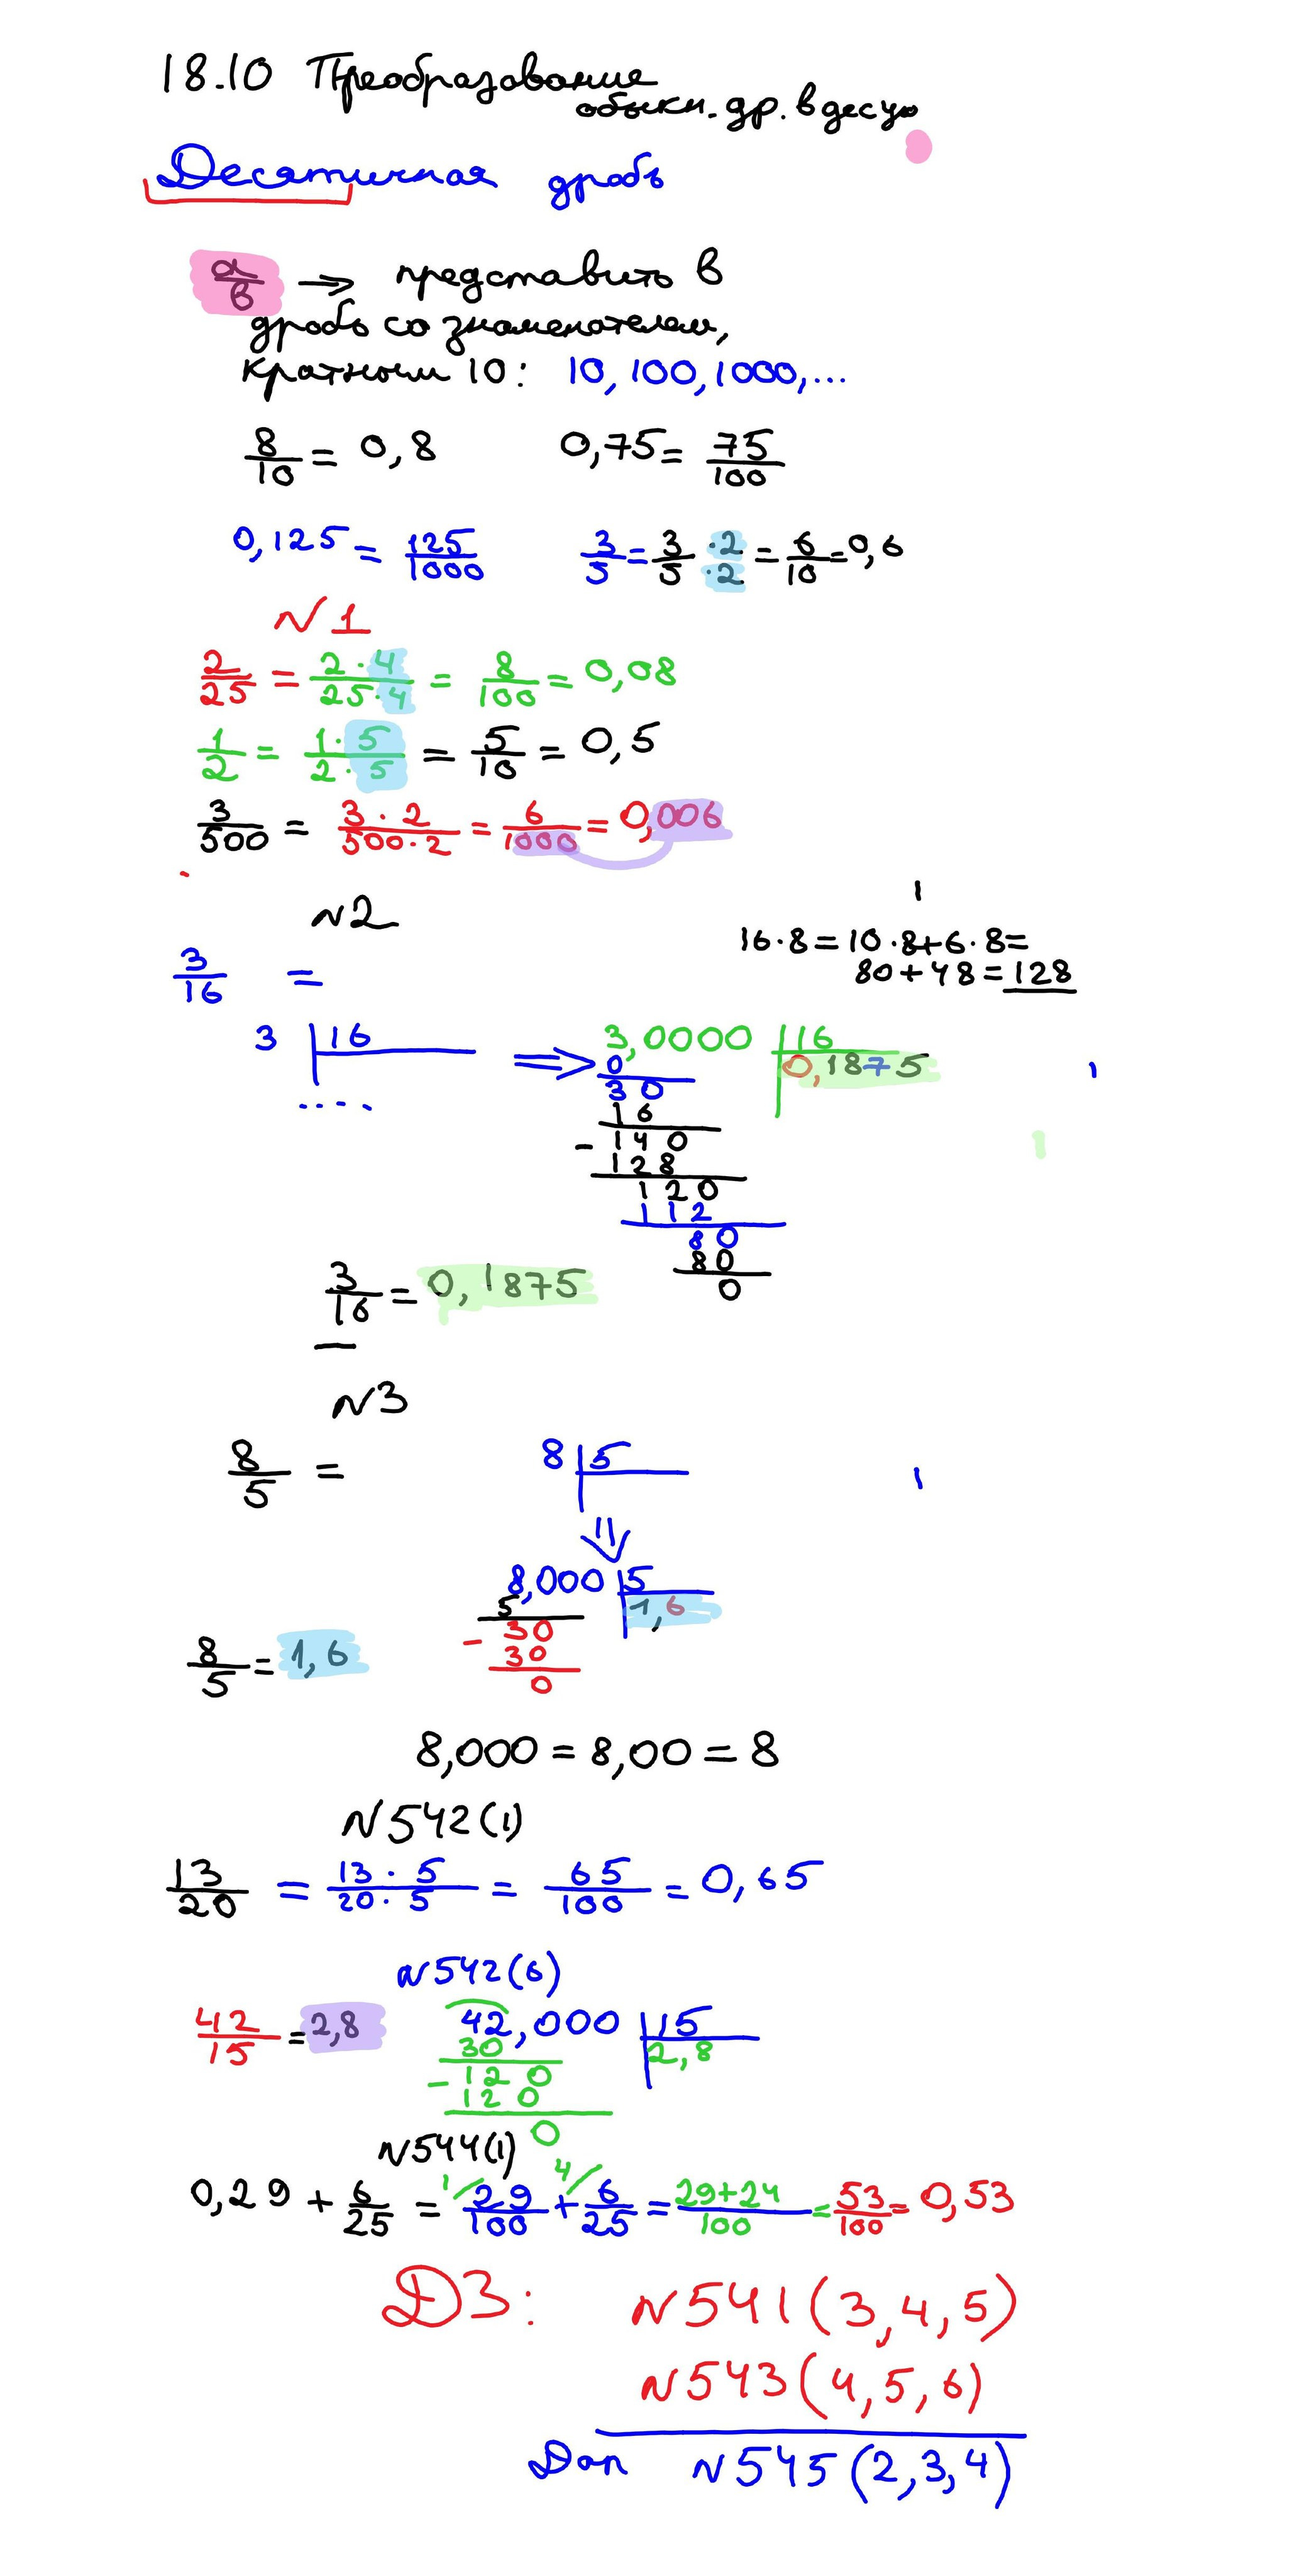 18.10 Преобразование
обыкн. др. в десят
Десятичная дробь
a/b ⇒ представить в
дробь со знаменателем,
кратным 10: 10, 100, 1000,...
8/10 = 0,8 0,75 = 75/100
0,125 = 125/1000 3/5 = 3·2/5·2 = 6/10 = 0,6
N1
2/25 = 2·4/25·4 = 8/100 = 0,08
1/2 = 1·5/2·5 = 5/10 = 0,5
3/500 = 3·2/500·2 = 6/1000 = 0,006
N2
16·8=10·8+6·8=
80+48=128
3/16 =
3 | 16 ⇒ 3,0000 | 16
0 0,1875
30
16
- 140
128
120
112
80
80
0
3/16 = 0,1875
N3
8/5 = 8 | 5
8,000 | 5
5 1,6
- 30
30
0
8/5 = 1,6
8,000 = 8,00 = 8
N542(1)
13/20 = 13·5/20·5 = 65/100 = 0,65
N542(6)
42/15 = 2,8 42,000 | 15
30 2,8
- 120
120
0
N544(1)
0,29 + 6/25 = 1/ 29/100 + 4/ 6/25 = 29+24/100 = 53/100 = 0,53
ДЗ: N541(3,4,5)
N543(4,5,6)
Доп N545(2,3,4)